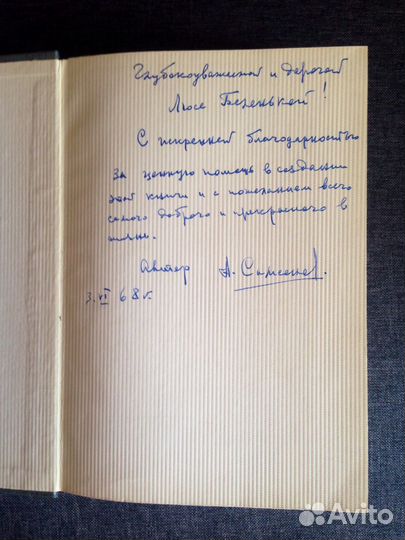 Глубокоуважаемой и дорогой
Люсе Беленькой!
С искренней благодарностью
за ценную помощь в создании
этой книги и с пожеланием всего
самого доброго и прекрасного в
жизни.
Автор А.
3. VI 68 г.
Avito